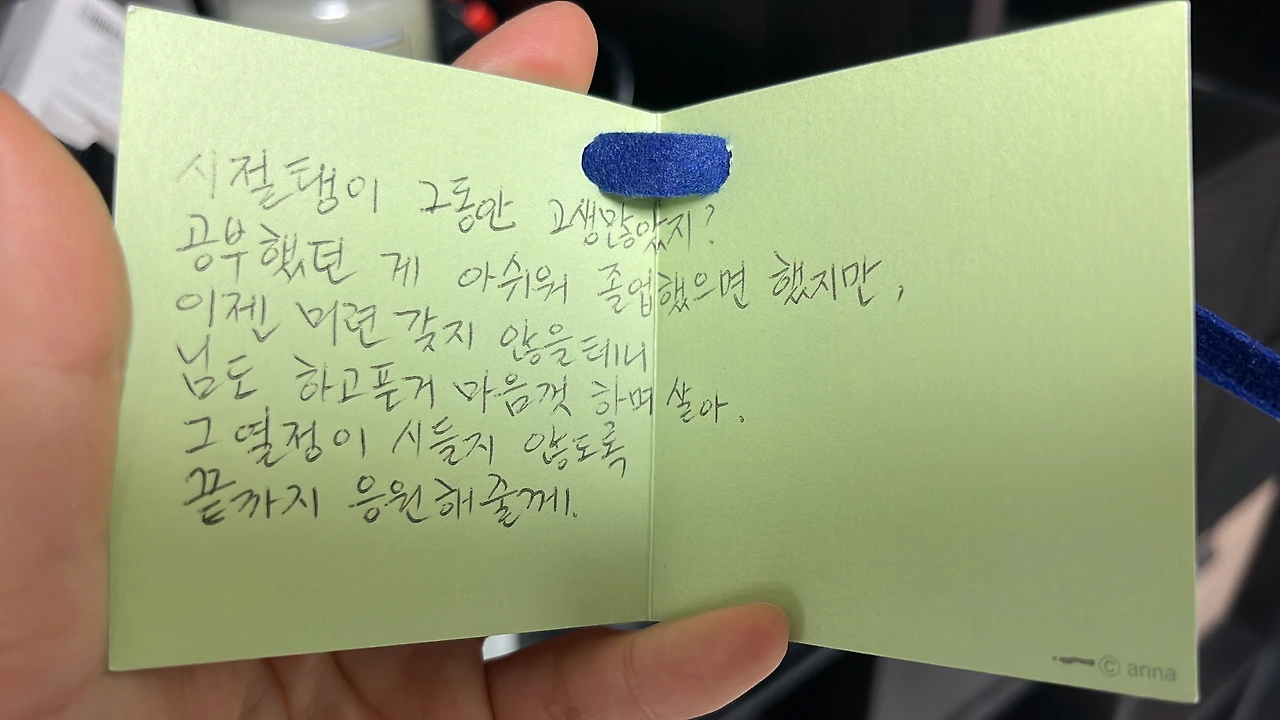 시절탱이 그동안 고생많았지?
공부했던 게 아쉬워 졸업했으면 했지만,
이젠 미련 갖지 않을테니
님도 하고픈거 마음껏 하며 살아.
그 열정이 시들지 않도록
끝까지 응원해줄께.
© anna